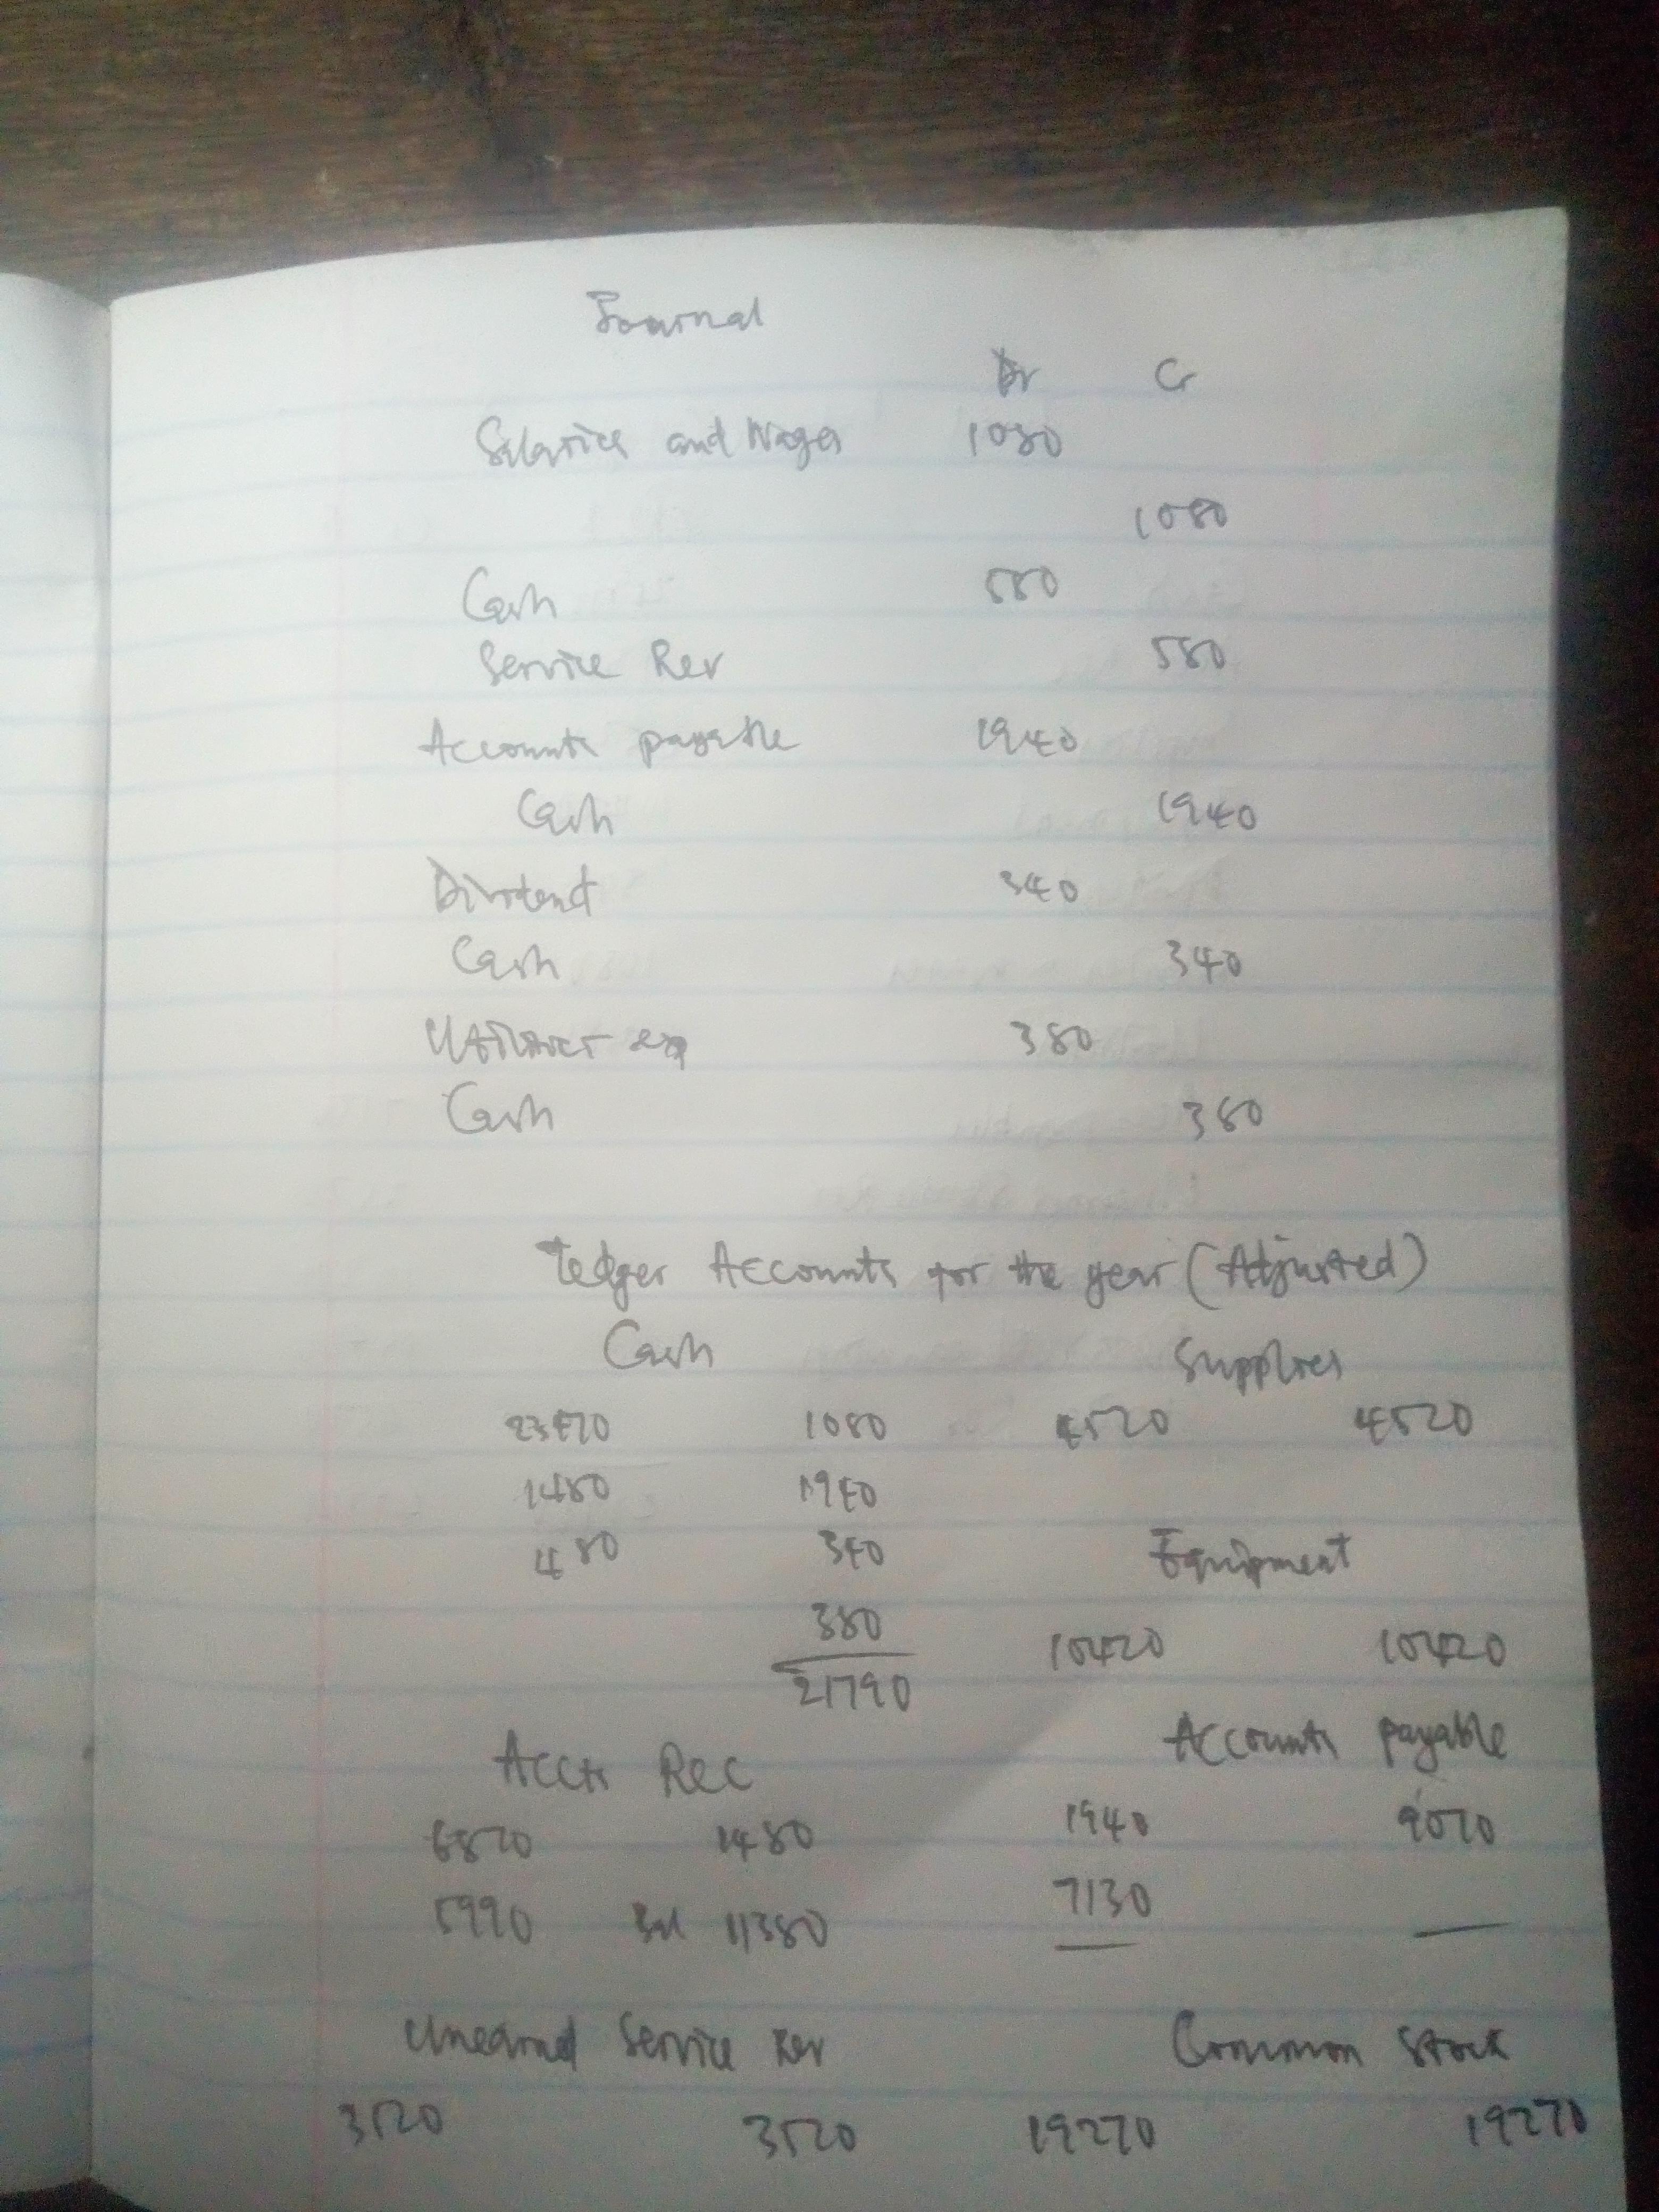 Journal
Dr Cr
Salaries and Wages 1080
1080
Cash 580
Service Rev 580
Accounts payable 1940
Cash 1940
Dividend 340
Cash 340
Utilities exp 380
Cash 380
Ledger Accounts for the year (Adjusted)
Cash Supplies
23470 1080 4520 4520
1480 1940
480 340 Equipment
380 10420 10420
21790
Accts Rec Accounts payable
6870 1480 1940 9070
5990 Bal 11380 7130
Unearned Service Rev Common Stock
3520 3520 19270 19270